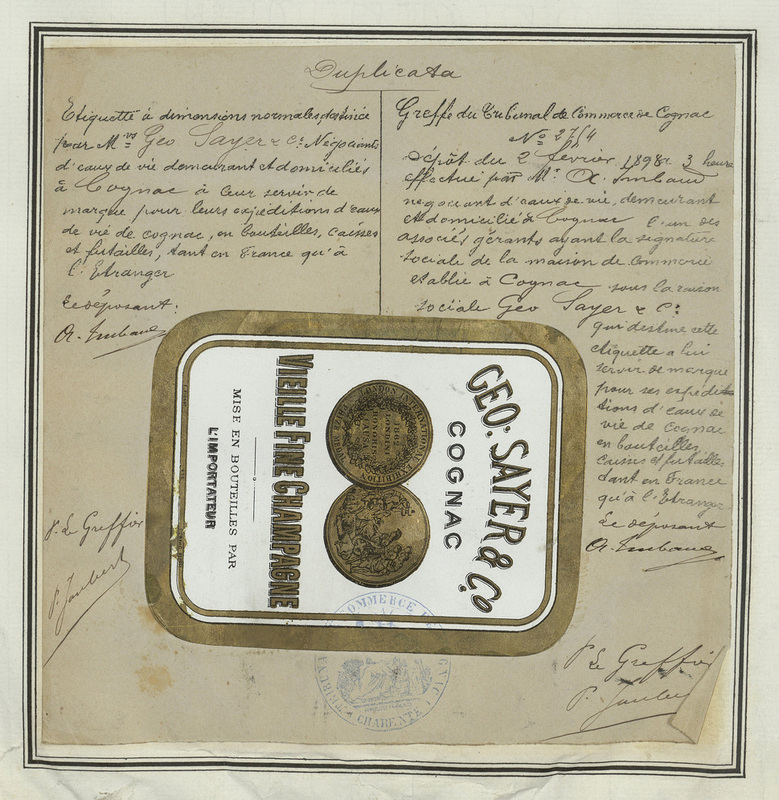 Duplicata
Etiquette à dimensions normales, destinée
par M.rs Geo Sayer & C.ie Négociants
d'eaux de vie demeurant et domiciliés
à Cognac à leur servir de
marque pour leurs expéditions d'eaux
de vie de cognac, en bouteilles, caisses
et futailles, tant en France qu'à
l'Etranger
Le déposant:
P. Le Greffier
Greffe du Tribunal de Commerce de Cognac
N.o 2714
Dépôt du 2 février 1898 à 3 heures
effectué par M.r
négociant d'eaux de vie, demeurant
et domicilié à Cognac l'un des
associés gérants ayant la signature
sociale de la maison de commerce
établie à Cognac sous la raison
sociale Geo Sayer & C.ie
qui destine cette
étiquette à lui
servir de marque
pour ses expédi-
tions d'eaux de
vie de cognac
en bouteilles
caisses et futailles
tant en France
qu'à l'Etranger.
Le déposant
P. Le Greffier
GEO: SAYER & Co.
COGNAC
LONDON INTERNATIONAL EXHIBITION
VIEILLE FINE CHAMPAGNE
MISE EN BOUTEILLES PAR
L'IMPORTATEUR
COMMERCE
CHARENTE